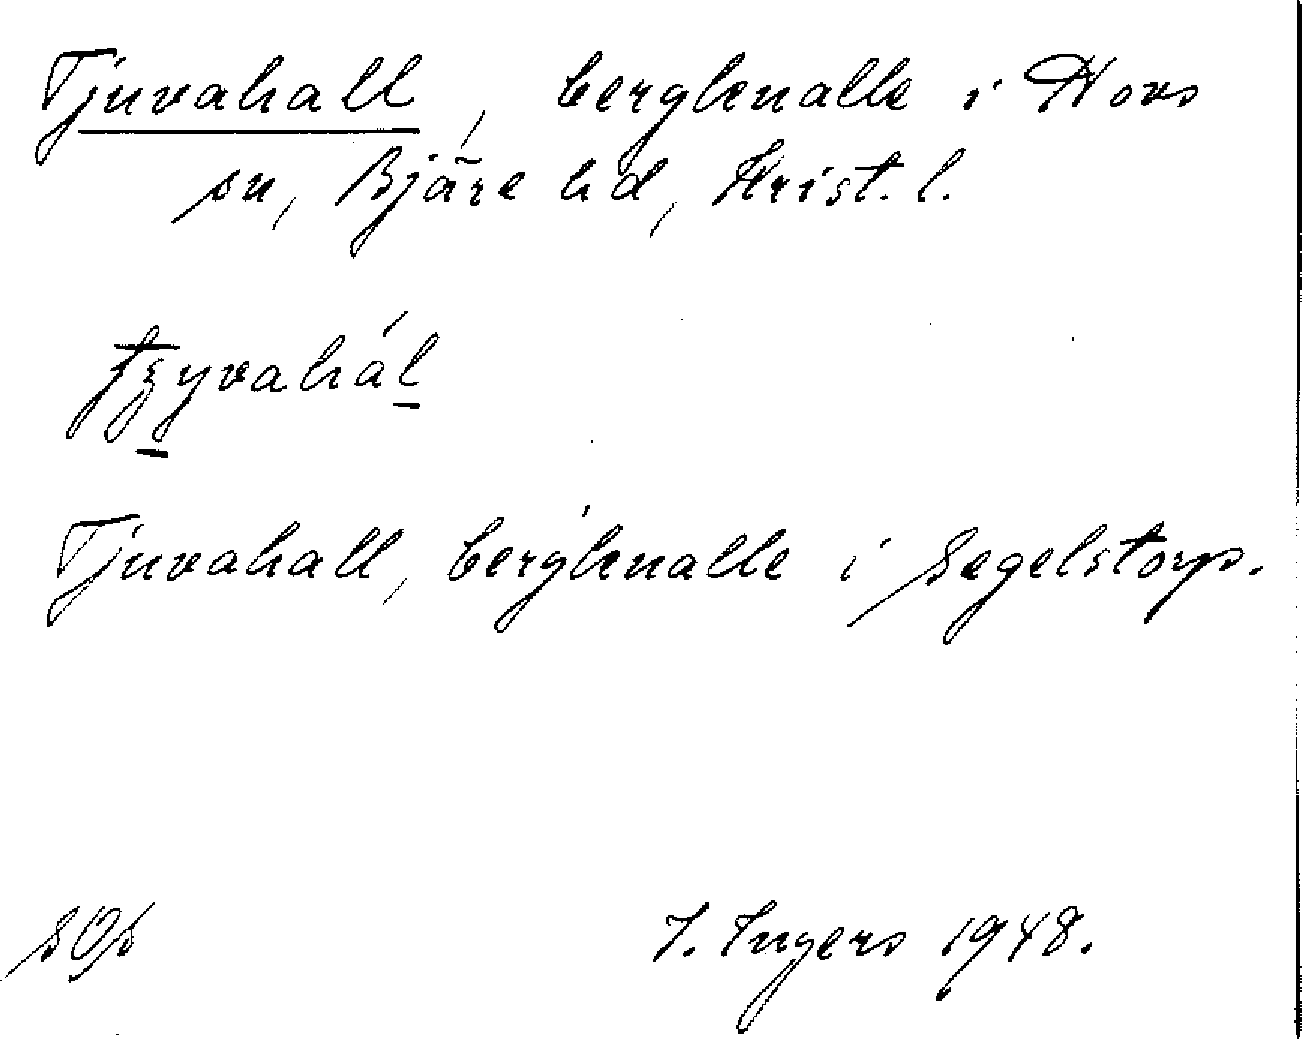 Tjuvahall, bergknalle i Hovs
sn, Bjäre hd, Krist. l.
Tjuvahall, bergknalle i Segelstorp.
I. Ingers 1948.